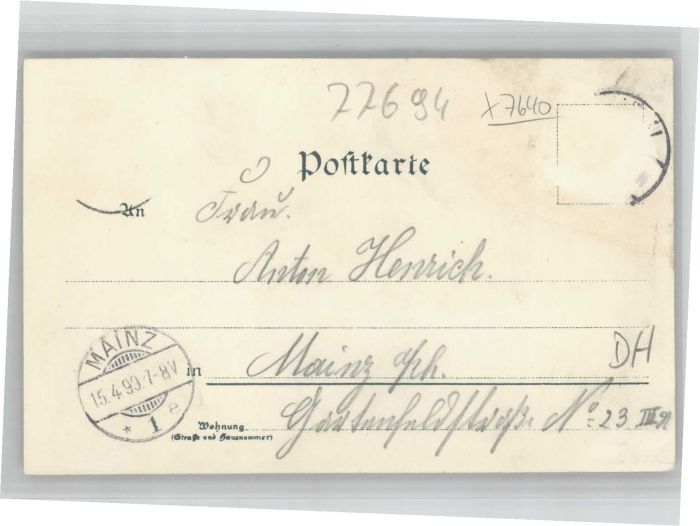 77694
x7640
Postkarte
An Frau.
Anton Henrich.
MAINZ
15.4.99.7-8V
* 1 e
in Mainz a/Rh.
DH
Wohnung
(Straße und Hausnummer)
Gartenfeldstraße No 23 III